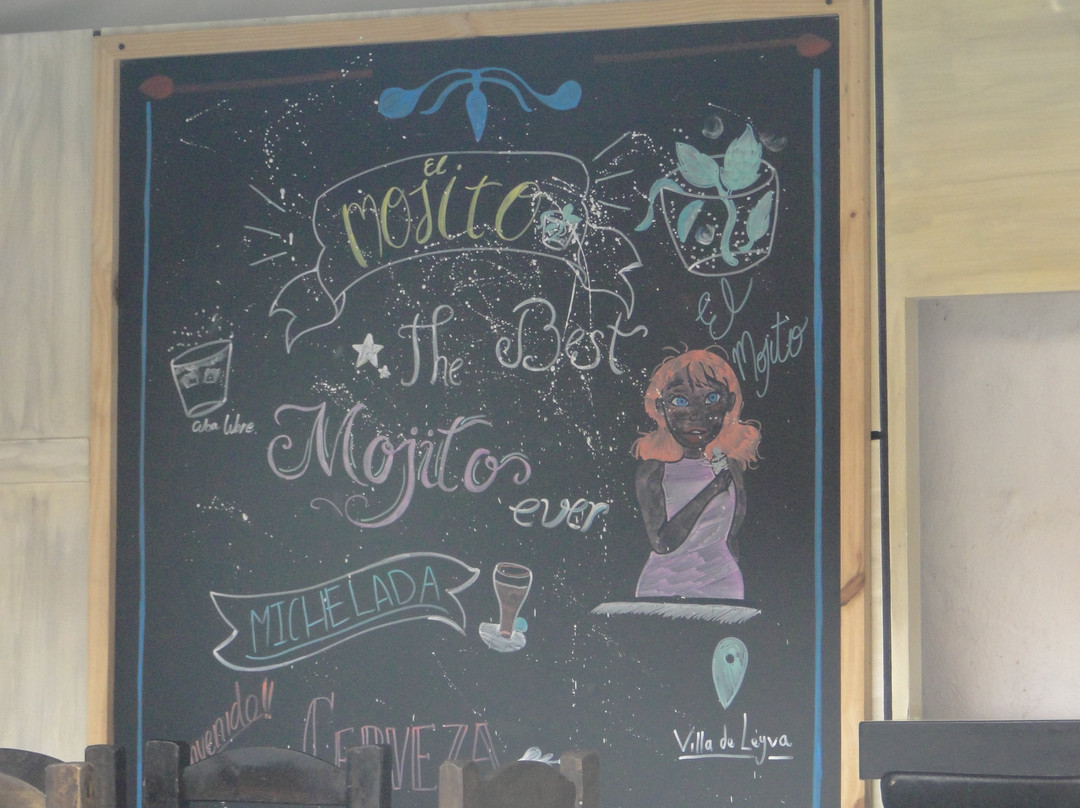 El
mojito
El
Mojito
The Best
Cuba Libre
Mojito
ever
MICHELADA
CERVEZA
Villa de Léyva